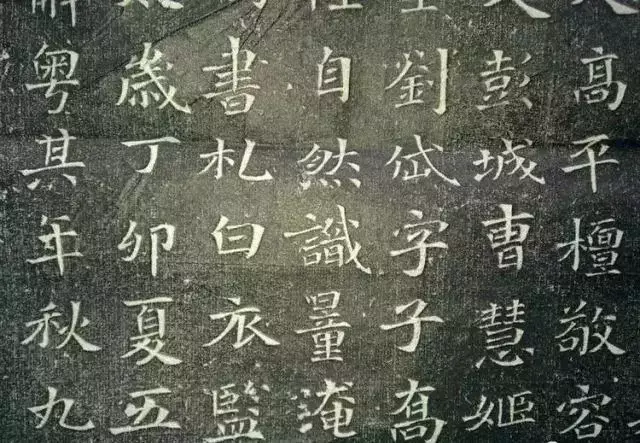 髙平檀敬容
彭城曹慧姬
劉岱字子喬
自然識量淹
書札白衣監
歲丁卯夏五
粤其年秋九